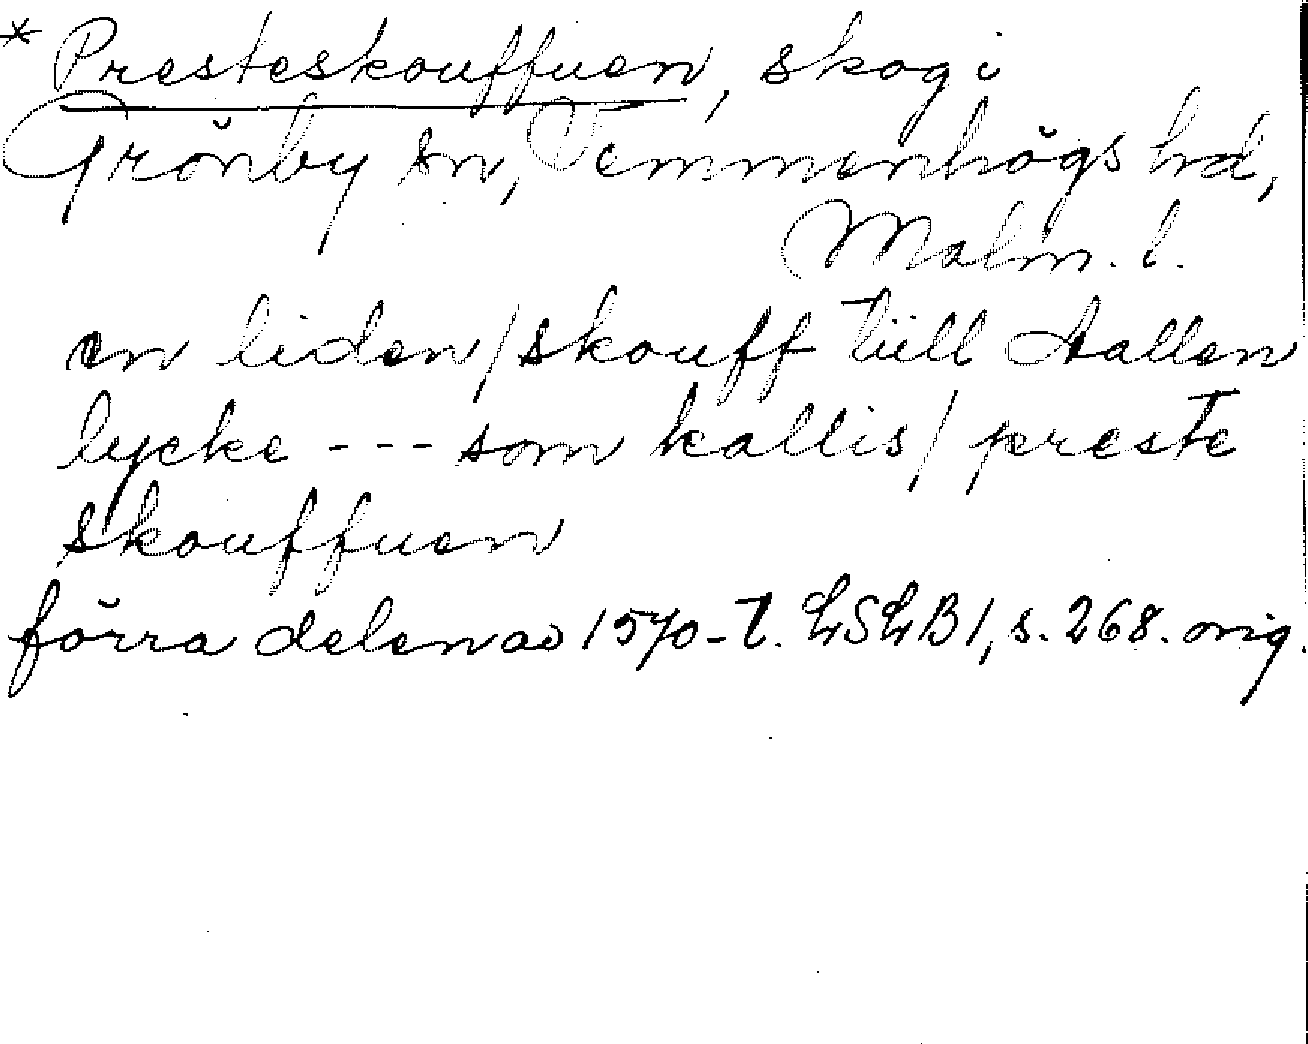 * Presteskouffuen, skog i
Grönby sn, Vemmenhögs hd,
Malm. l.
en liden/skouff till stallen
lycke --- som kallis/ preste
skouffuen
förra delen av 1570-t. LSLB1, s. 268. orig.